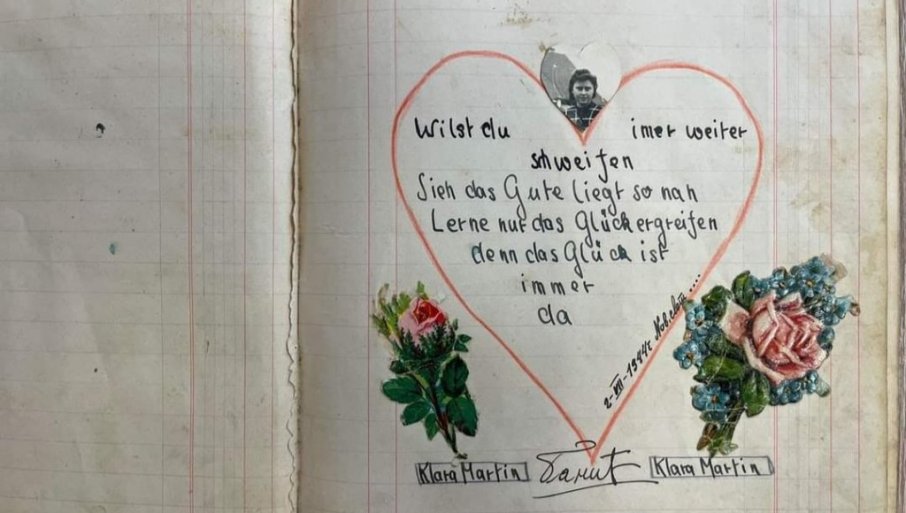 Wilst du imer weiter
schweifen
Sieh das Gute liegt so nah
Lerne nur das Glück ergreifen
denn das Glück ist
immer
da
2-VII-1944г.
Klara Martin Klara Martin